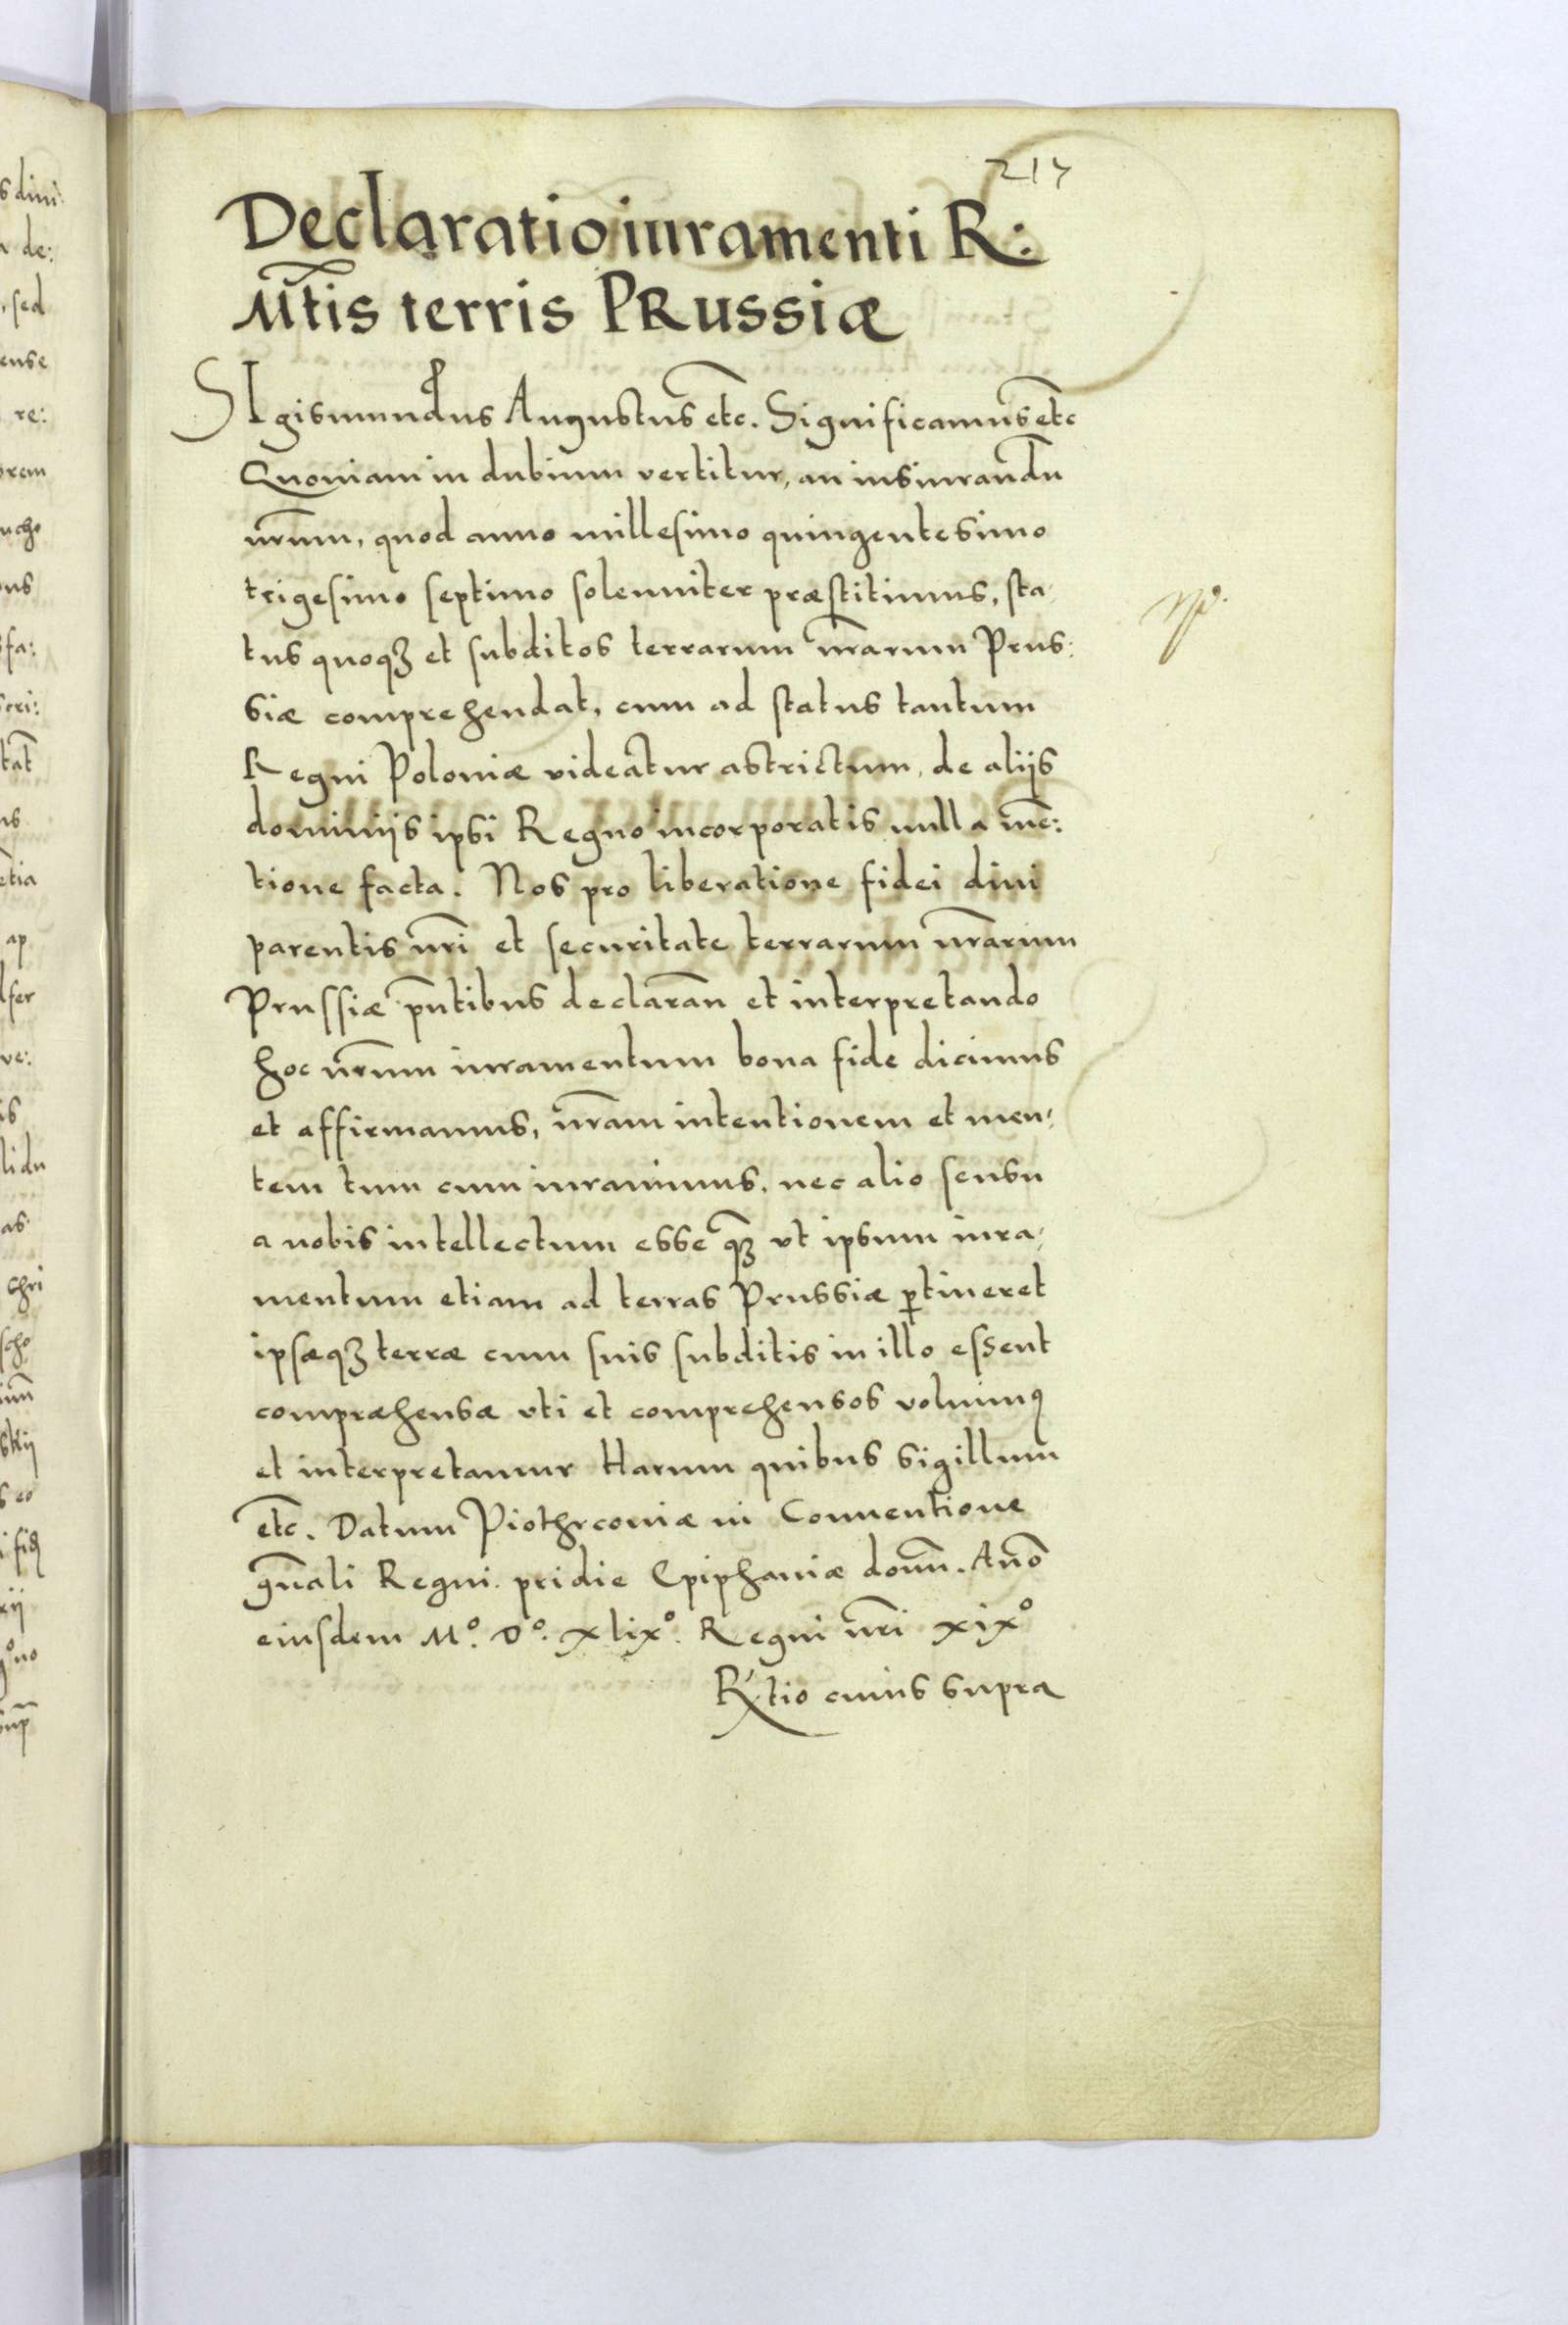 217
Declaratio iuramenti R:
Mtis terris PRussiæ
SIgismundus Augustus etc. Significamus etc
Quoniam in dubium vertitur, an iusiurandu
nrum, quod anno millesimo quingentesimo
trigesimo septimo solenniter præstitimus, sta,
tus quoqз et subditos terrarum nrarum Prus:
siæ comprehendat, cum ad status tantum
Regni Poloniæ videatur astrictum, de aliis
dominiis ipsi Regno incorporatis nulla mē:
tione facta. Nos pro liberatione fidei diui
parentis nri et securitate terrarum nrarum
Prussiæ pntibus declaran et interpretando
hoc nrum iuramentum bona fide dicimus
et affirmamus, nram intentionem et men,
tem tum cum iurauimus, nec alio sensu
a nobis intellectum esse qз vt ipsum iura,
mentum etiam ad terras Prussiæ ptineret
ipsæqз terræ cum suis subditis in illo essent
compræhensæ vti et comprehensos volumus
et interpretamur Harum quibus sigillum
etc. Datum Piothrcouiæ in Conuentione
gnali Regni. pridie Epiphaniæ domn. Anno
eiusdem Mº. Dº. xlixº. Regni nri xixº
Rtio cuius supra
s diui
de:
sed
ense
re:
orem
ucho
ous
fa:
scri:
tat
us
etia
ap
lfer
ve:
is
lidu
as
chri
scho
skij
s eo